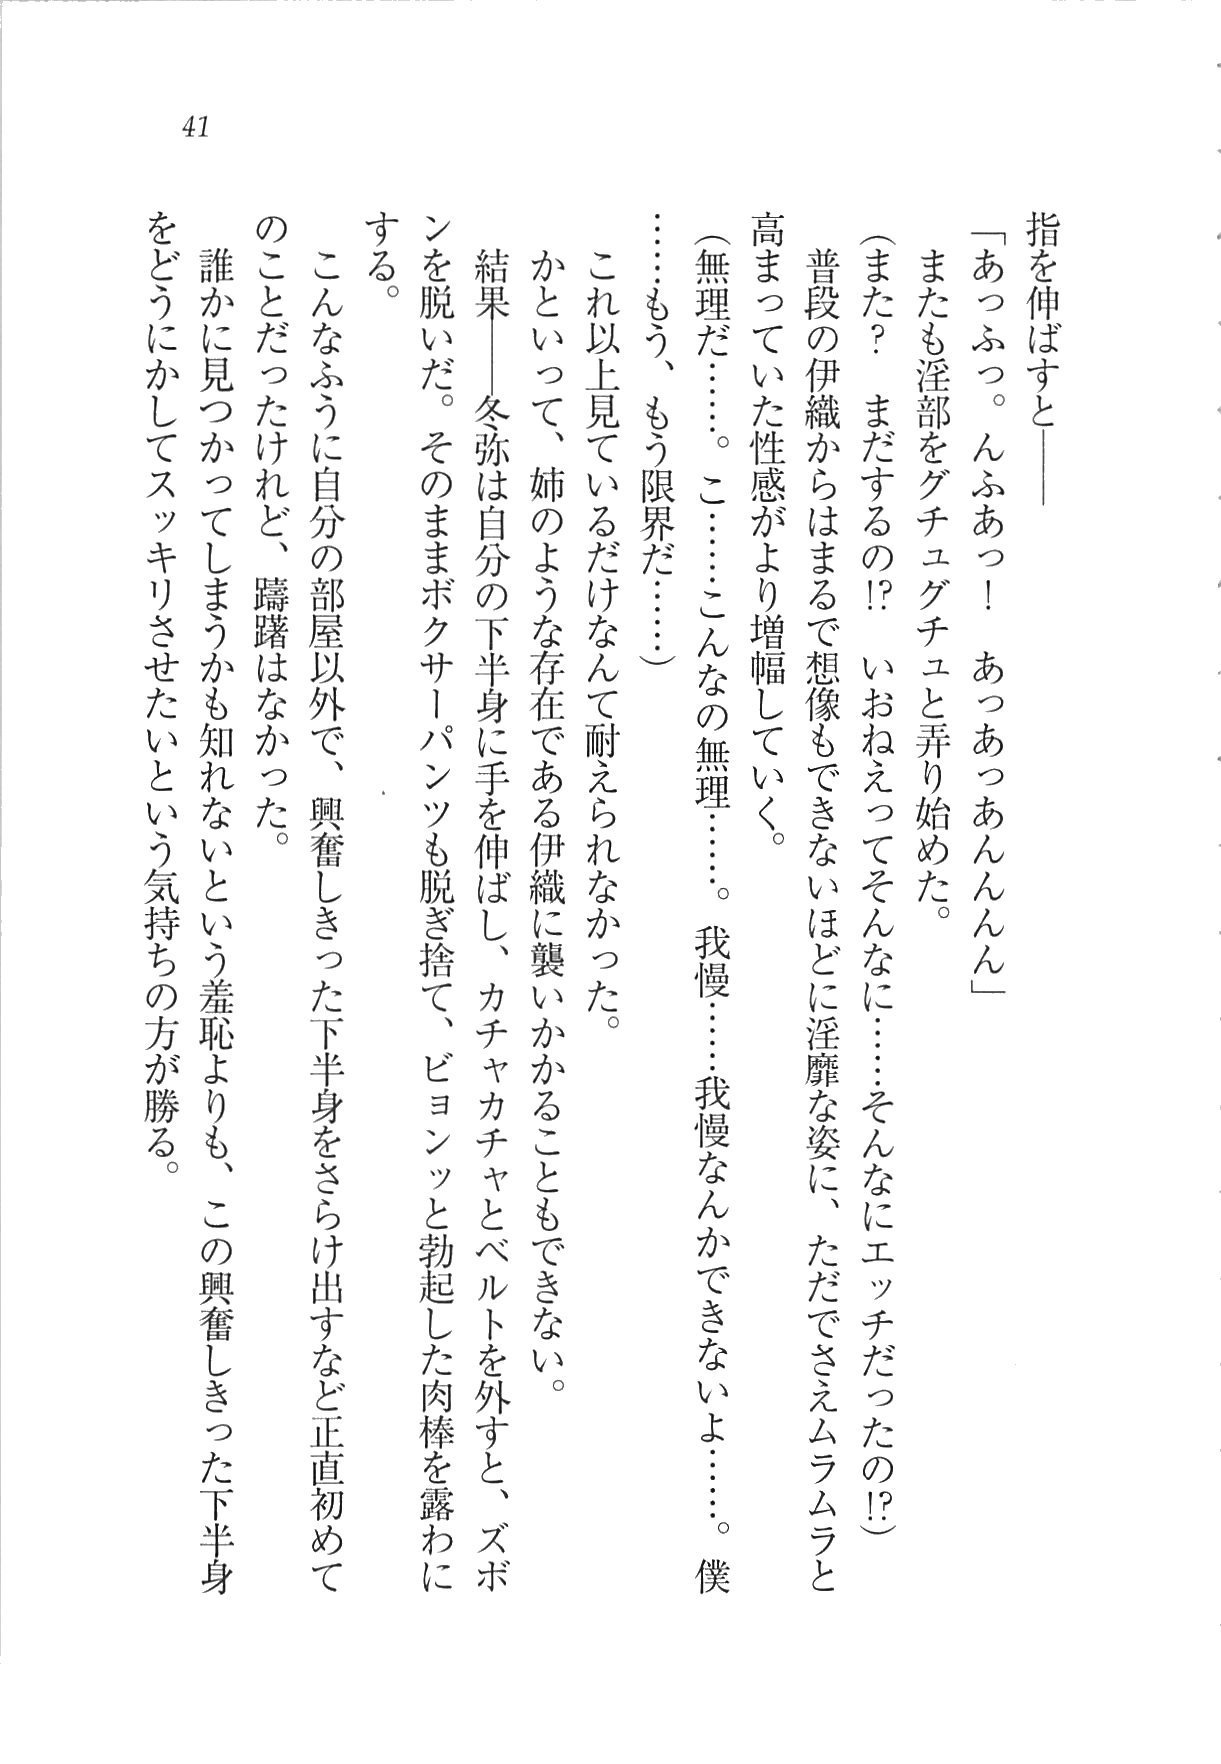 41
指を伸ばすと――
「あっふっ。んふあっ！　あっあっあんんんん」
　またも淫部をグチュグチュと弄り始めた。
（また？　まだするの!?　いおねえってそんなに……そんなにエッチだったの!?）
　普段の伊織からはまるで想像もできないほどに淫靡な姿に、ただでさえムラムラと
高まっていた性感がより増幅していく。
（無理だ……。こ……こんなの無理……。我慢……我慢なんかできないよ……。僕
……もう、もう限界だ……）
　これ以上見ているだけなんて耐えられなかった。
　かといって、姉のような存在である伊織に襲いかかることもできない。
　結果――冬弥は自分の下半身に手を伸ばし、カチャカチャとベルトを外すと、ズボ
ンを脱いだ。そのままボクサーパンツも脱ぎ捨て、ビョンッと勃起した肉棒を露わに
する。
　こんなふうに自分の部屋以外で、興奮しきった下半身をさらけ出すなど正直初めて
のことだったけれど、躊躇はなかった。
　誰かに見つかってしまうかも知れないという羞恥よりも、この興奮しきった下半身
をどうにかしてスッキリさせたいという気持ちの方が勝る。